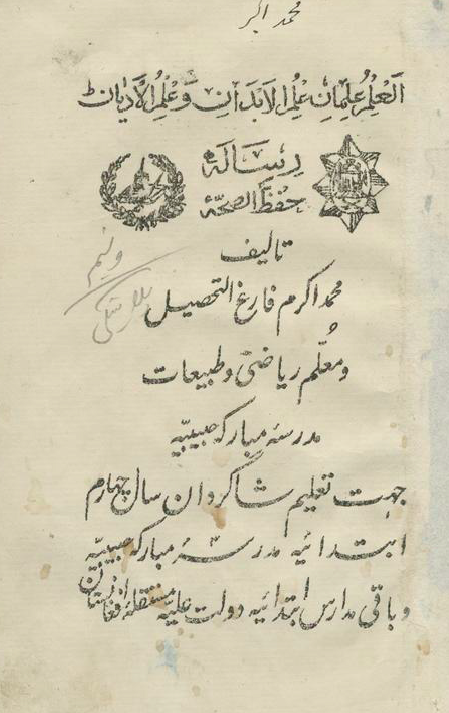 محمد اکبر
اَلعِلْمُ عِلْمَانِ عِلْمُ الاَبْدَانِ وَعِلْمُ الاَدْیَانْ
رِسَالَهٔ
حِفْظُ الصّحَّهٔ
تالیف
محمد اکرم فارغ التحصیل
ومُعلّم ریاضی وطبیعات
مدرسهٔ مبارکه حبیبیّه
جهت تعلیم شاگردان سال چهارم
ابتدائیه مدرسهٔ مبارکه حبیبیّه
و باقی مدارس ابتدائیه دولت علیّه مستقلهٔ افغانستان